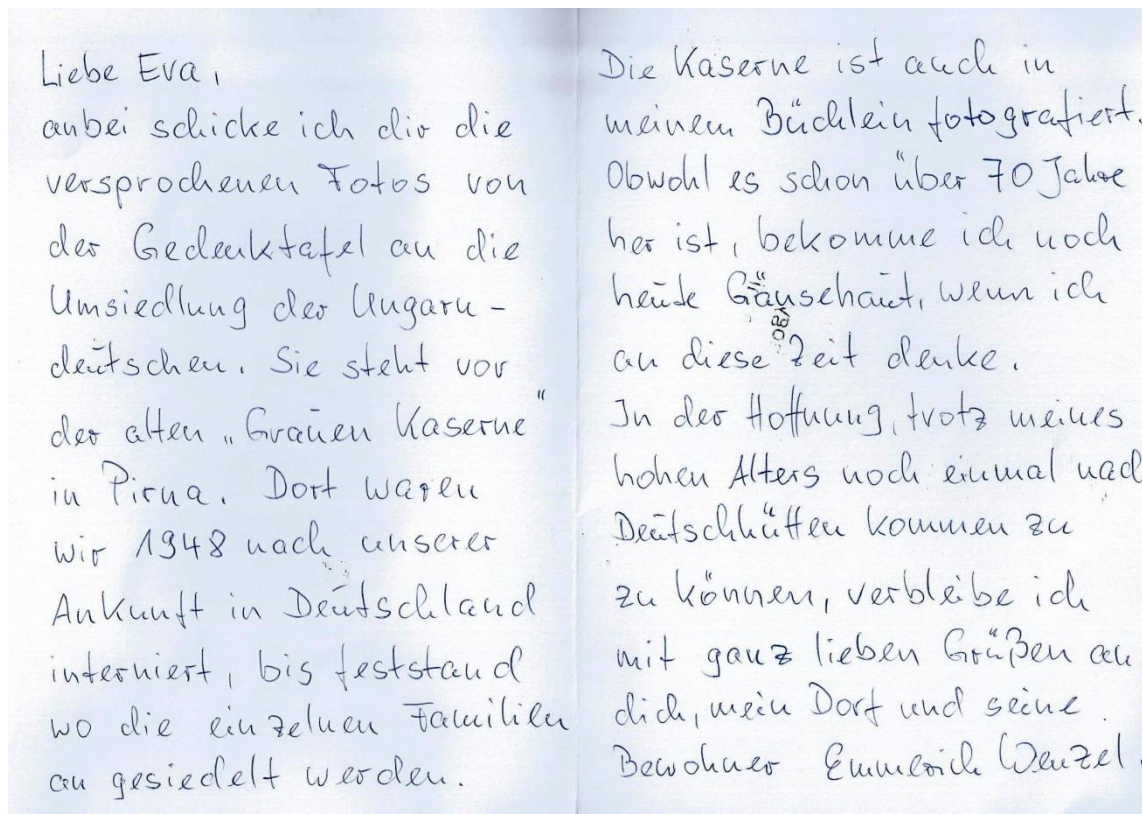 Liebe Eva,
anbei schicke ich dir die
versprochenen Fotos von
der Gedenktafel an die
Umsiedlung der Ungarn-
deutschen. Sie steht vor
der alten „Grauen Kaserne“
in Pirna. Dort waren
wir 1948 nach unserer
Ankunft in Deutschland
interniert, bis feststand
wo die einzelnen Familien
an gesiedelt werden.
Die Kaserne ist auch in
meinem Büchlein fotografiert.
Obwohl es schon über 70 Jahre
her ist, bekomme ich noch
heute Gänsehaut, wenn ich
an diese Zeit denke.
In der Hoffnung, trotz meines
hohen Alters noch einmal nach
Deutschhütten kommen zu
zu können, verbleibe ich
mit ganz lieben Grüßen an
dich, mein Dorf und seine
Bewohner Emmerich Wenzel.